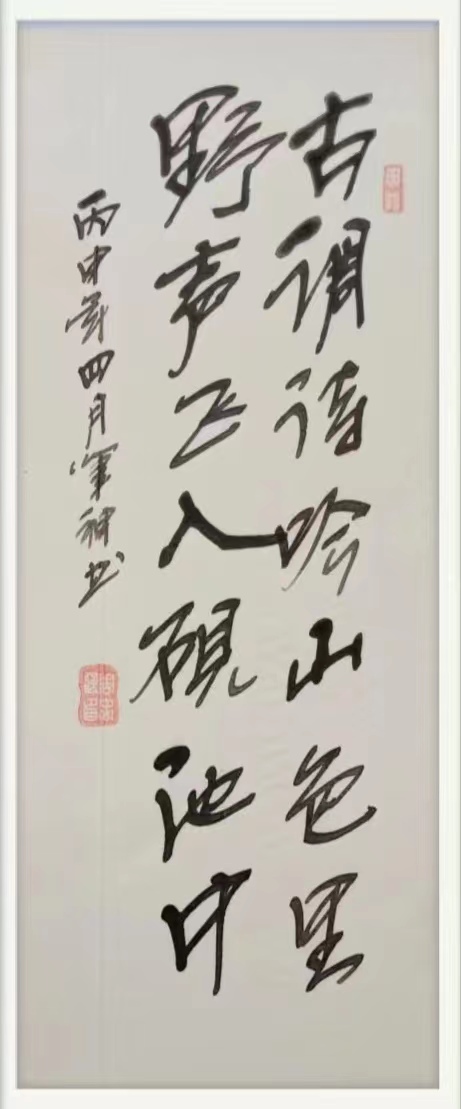 古调诗吟山色里
野声飞入砚池中
丙申年四月军神书